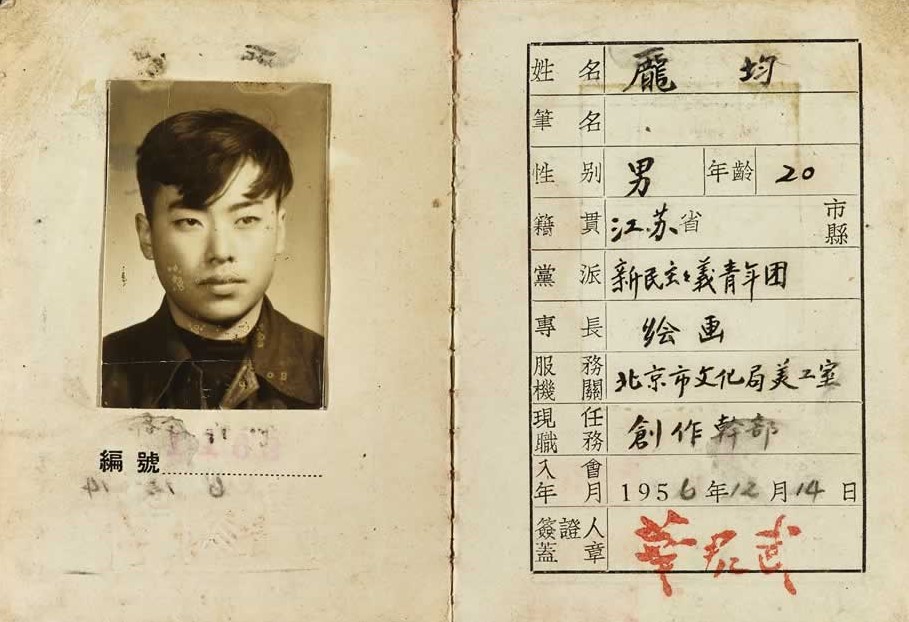 編號
姓名 龐均
筆名
性別 男 年齡 20
籍貫 江苏省 市縣
黨派 新民主主義青年团
專長 绘画
服務機關 北京市文化局美工室
現任職務 創作幹部
入會年月 1956年12月14日
簽證人蓋章 華君武